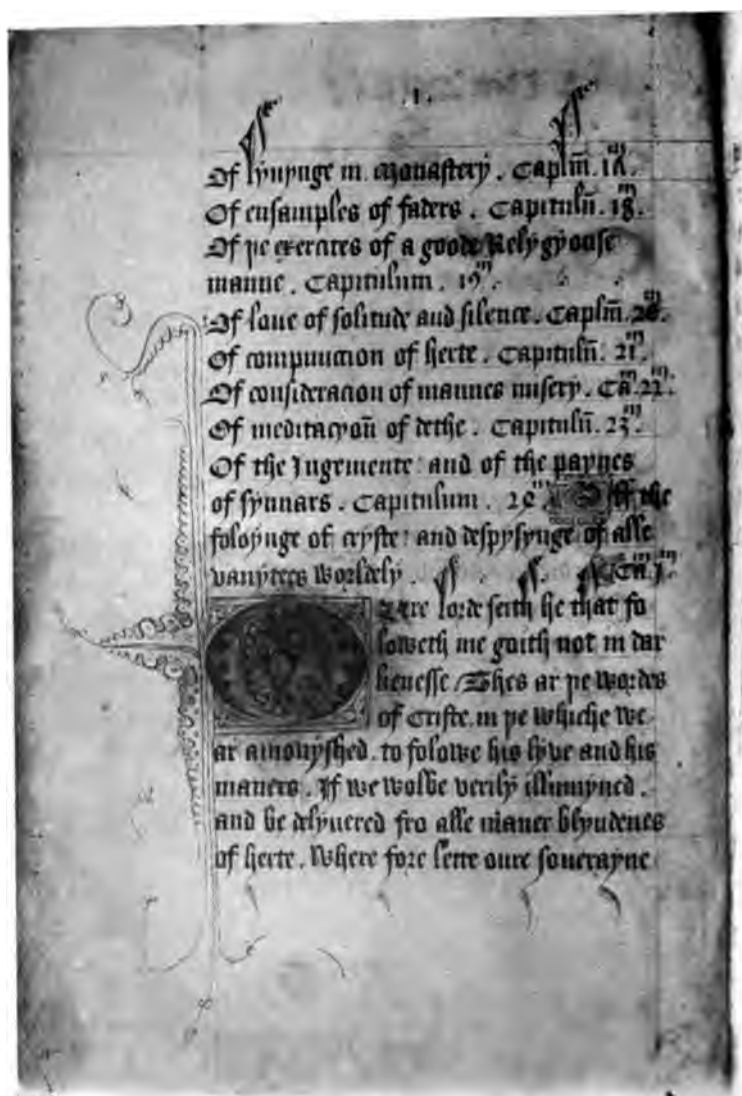 .1.
Of lyuynge in Monastery . Caplm̄. 17m.
Of ensamples of faders . Capitulū. 18m.
Of þe exercites of a goode Relygyouse
manne . Capitulum . 19m.
Of loue of solitude and silence . Caplm̄. 20m.
Of compunccion of herte . Capitulū: 21m.
Of consideracion of mannes misery . Ca. 22m.
Of meditacyoū of dethe . Capitulū. 23m.
Of the Jugemente: and of the paynes
of synnars . Capitulum . 24m. Off the
foloynge of cryste: and despysynge of alle
vanytees worldely . Cam. 1m.
Oure lorde seith he that fo
loweth me goith not in dar
kenesse / Thes ar þe wordes
of Criste. in þe whiche we
ar amonysshed. to folowe his lyve and his
maners . If we wolbe verily illumyned .
and be delyuered fro alle maner blyndenes
of herte . Where fore lette oure souerayne